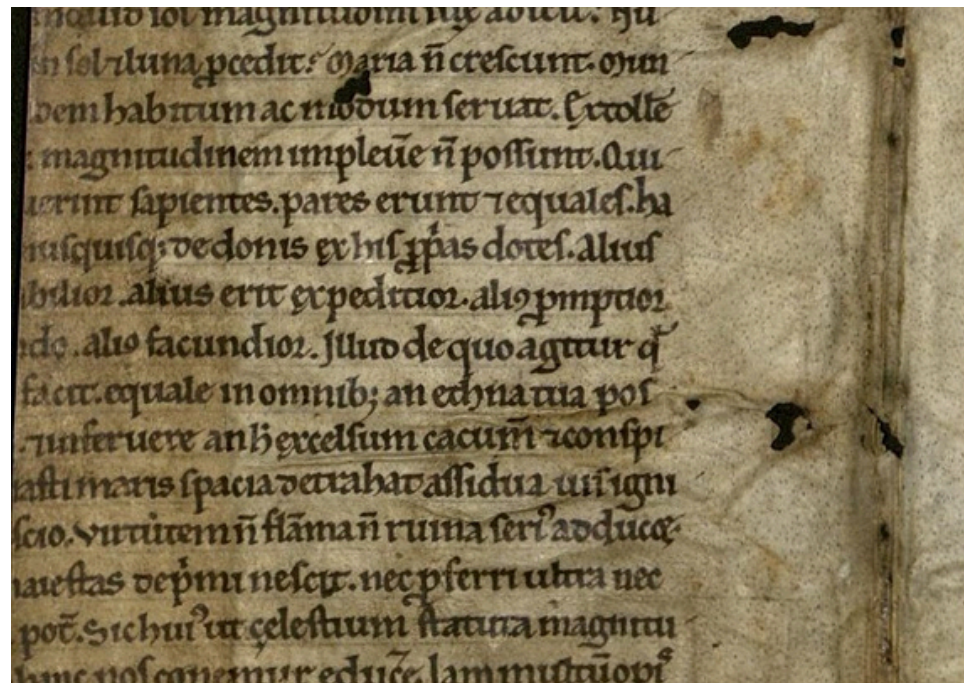 sol magnitudini
sol ⁊luna p̱cedit. Maria n̄ crescunt. Mun
dem habitum ac modum seruat. Extollẽ
magnitudinem impleũe n̄ possunt. Qui
uerint sapientes. pares erunt ⁊equales. ha
nusquisq; de donis ex his p̱p̃as dotes. Alius
bilior. alius erit expeditior. ali⁹ p̱mptior
do. ali⁹ facundior. Illud de quo agitur q̄
facit. equale in omnib; an ethna tua pos
⁊inferuere an h̄ excelsum cacum̄ ⁊conspi
uasti maris spacia detrahat assidua uis igni
scio. Virtutem n̄ flāma n̄ ruina feri⁹ adducę.
maiestas dep̃mi nescit. nec p̱ferri ultra nec
pot̃. Sic hui⁹ ut cęlestium statuta magnitu
hinc nos conemur educ̃e. Iam